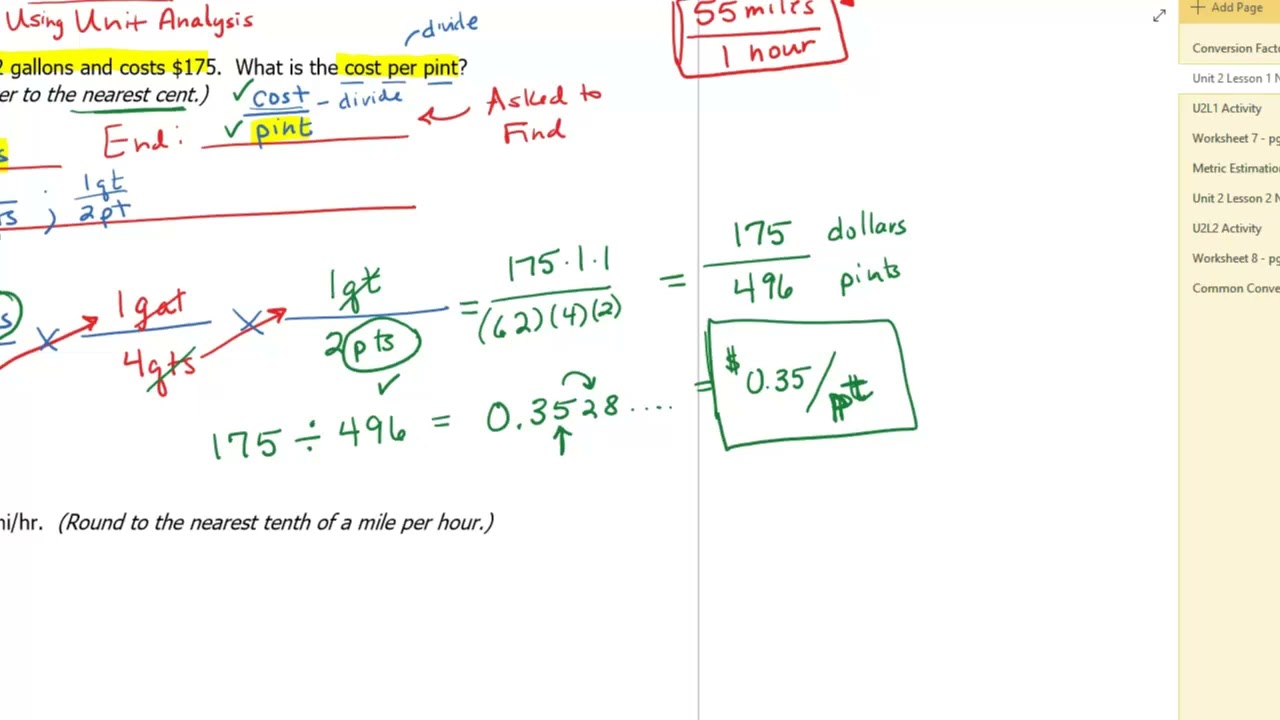 Using Unit Analysis
divide
55 miles
1 hour
2 gallons and costs $175. What is the cost per pint?
er to the nearest cent.)
cost - divide
pint
End:
Asked to
Find
s
; 1qt
2pt
1gal
4qts
×
1qt
2pts
= 175·1·1
(62)(4)(2)
= 175 dollars
496 pints
= $0.35/pt
175 ÷ 496 = 0.3528....
ni/hr. (Round to the nearest tenth of a mile per hour.)
Add Page
Conversion Factu
Unit 2 Lesson 1 N
U2L1 Activity
Worksheet 7 - pg
Metric Estimatio
Unit 2 Lesson 2 N
U2L2 Activity
Worksheet 8 - pg
Common Conve